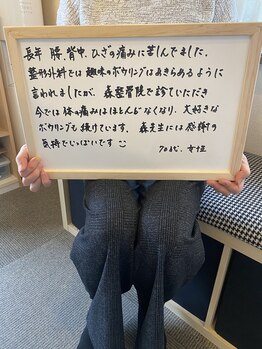 長年 腰、背中、ひざの痛みに苦しんでました。
整形外科では 趣味のボウリングはあきらめるように
言われましたが、森整骨院で診ていただき
今では 体の痛みはほとんどなくなり、大好きな
ボウリングも続けています。 森先生には感謝の
気持でいっぱいです
70代、女性